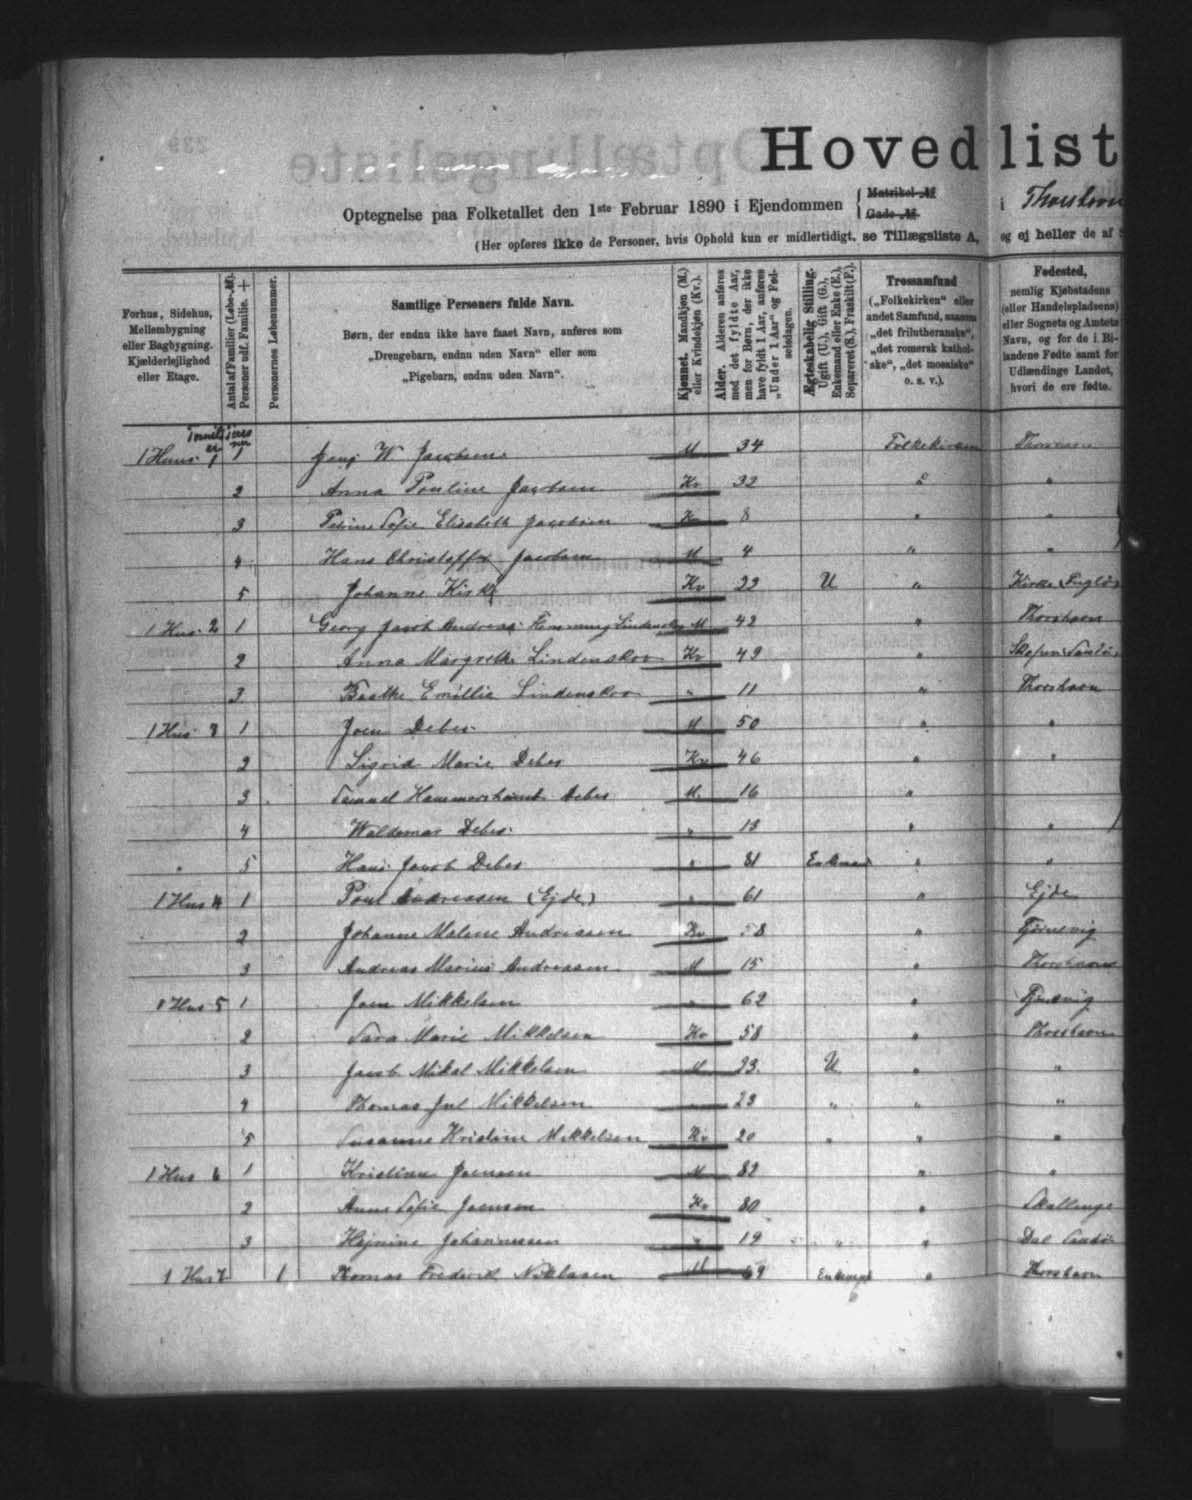 Hovedlist
Optegnelse paa Folketallet den 1ste Februar 1890 i Ejendommen { Matrikel-№ Gade-№ i Thorshavn
(Her opføres ikke de Personer, hvis Ophold kun er midlertidigt, se Tillægsliste A, og ej heller de af
Forhus, Sidehus, Mellembygning eller Bagbygning. Kjælderlejlighed eller Etage.
Antal af Familier (Løbe-№).
Personer udf. Familie. +
Personernes Løbenummer.
Samtlige Personers fulde Navn.
Børn, der endnu ikke have faaet Navn, anføres som „Drengebarn, endnu uden Navn“ eller som „Pigebarn, endnu uden Navn“.
Kjønnet. Mandkjøn (M.) eller Kvindekjøn (Kv.).
Alder. Alderen anføres med det fyldte Aar, men for Børn, der ikke have fyldt 1 Aar, anføres „Under 1 Aar“ og Fødselsdagen.
Ægteskabelig Stilling. Ugift (U.), Gift (G.), Enkemand eller Enke (E.), Separeret (S.), Fraskilt (F.).
Trossamfund („Folkekirken“ eller andet Samfund, saasom „det frilutheranske“, „det romersk katholske“, „det mosaiske“ o. s. v.).
Fødested, nemlig Kjøbstadens (eller Handelspladsens) eller Sognets og Amtets Navn, og for de i Bilandene Fødte samt for Udlændinge Landet, hvori de ere fødte.
1 Huus 1 1 W Jacobsen M 34 Folkekirken Thorshavn
2 Anna Pauline Jacobsen Kv 32 " "
3 Petrine Sofie Elisabeth Jacobsen Kv 8 " "
4 Hans Christoffer Jacobsen M 4 " "
5 Johanne Kv 22 U "
1 Hus 2 1 Georg Jacob Andreas Flemming Lindenskov M 42 " Thorshavn
2 Anna Margrethe Lindenskov Kv 49 " Skopen Sandø
3 Emilie Lindenskov " 11 " Thorshavn
1 Hus 3 1 Joen Debes M 50 " "
2 Sigrid Marie Debes Kv 46 " "
3 Samuel Debes M 16 "
4 Waldemar Debes " 13 " "
5 Hans Jacob Debes " 81 Enkemand " "
1 Hus 4 1 Poul Andreassen (Ejde) " 61 " Ejde
2 Johanne Malene Andreasen Kv 58 " Tjørnevig
3 Andreas Marius Andreasen M 15 " Thorshavn
1 Hus 5 1 Joen Mikkelsen " 62 " Tjørnevig
2 Sara Marie Mikkelsen Kv 58 " Thorshavn
3 Jacob Mikal Mikkelsen M 23 U " "
4 Thomas Jul Mikkelsen " 23 " " "
5 Susanne Kristine Mikkelsen Kv 20 " " "
1 Hus 6 1 Joensen M 82 " "
2 Anne Sofie Joensen Kv 80 "
3 Johannessen " 19 " " Dal Sandø
1 Hus 7 1 Thomas Frederik Niklasen M 69 Enkemd " Thorshavn